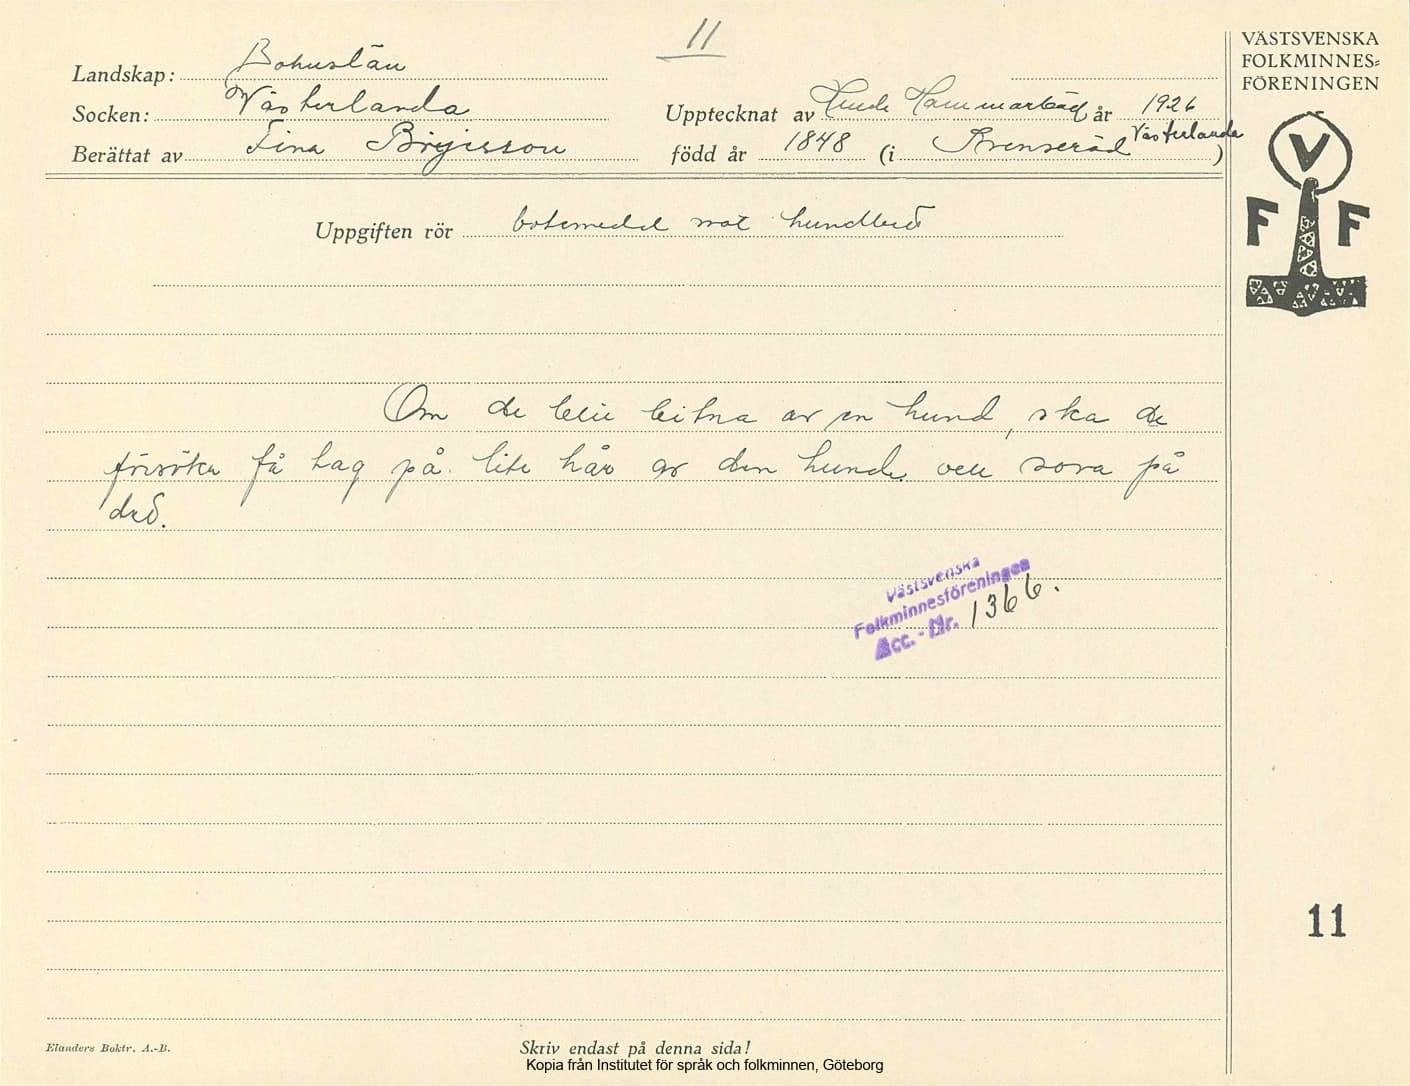 11
VÄSTSVENSKA
FOLKMINNES=
FÖRENINGEN
Landskap: Bohuslän
Socken: Västerlanda
Upptecknat av Hammarbäck år 1926
Berättat av Tina Börjesson
född år 1848 (i Svenseröd Västerlanda)
V
F F
Uppgiften rör botemedel mot hundbett
Om de blir bitna av en hund, ska de
försöka få tag på lite hår av den hunde. veu sova på
det.
Västsvenska
Folkminnesföreningen
Acc. - Nr. 1366.
11
Elanders Boktr. A.-B.
Skriv endast på denna sida!
Kopia från Institutet för språk och folkminnen, Göteborg